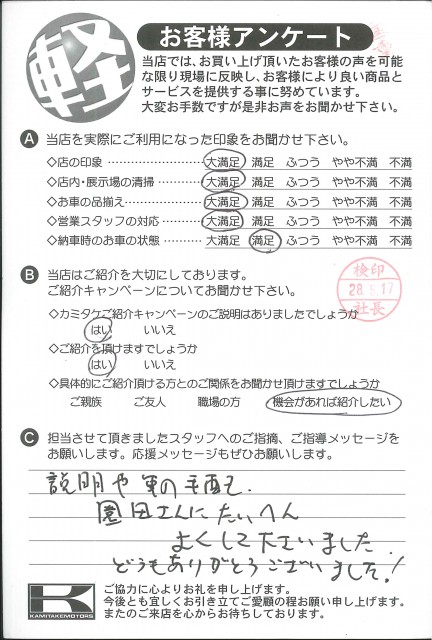 軽
お客様アンケート
当店では、お買い上げ頂いたお客様の声を可能
な限り現場に反映し、お客様により良い商品と
サービスを提供する事に努めています。
大変お手数ですが是非お声をお聞かせ下さい。
A 当店を実際にご利用になった印象をお聞かせ下さい。
◇店の印象 ………………… 大満足 満足 ふつう やや不満 不満
◇店内・展示場の清掃………… 大満足 満足 ふつう やや不満 不満
◇お車の品揃え……………… 大満足 満足 ふつう やや不満 不満
◇営業スタッフの対応………… 大満足 満足 ふつう やや不満 不満
◇納車時のお車の状態 ……… 大満足 満足 ふつう やや不満 不満
B 当店はご紹介を大切にしてあります。
ご紹介キャンペーンについてお聞かせ下さい。
検印
28.5.17
社長
◇カミタケご紹介キャンペーンのご説明はありましたでしょうか
はい いいえ
◇ご紹介を頂けますでしょうか
はい いいえ
◇具体的にご紹介頂ける方とのご関係をお聞かせ頂けますでしょうか
ご親族 ご友人 職場の方 機会があれば紹介したい
C 担当させて頂きましたスタッフへのご指摘、ご指導メッセージを
お願いします。応援メッセージもぜひお願いします。
説明や車の手配も、
園田さんにたいへん
よくして下さいました
どうもありがとうございました!
KAMITAKEMOTORS
ご協力に心よりお礼を申し上げます。
今後とも宜しくお引き立てご愛顧の程お願い申し上げます。
またのご来店を心からお待ちしております。